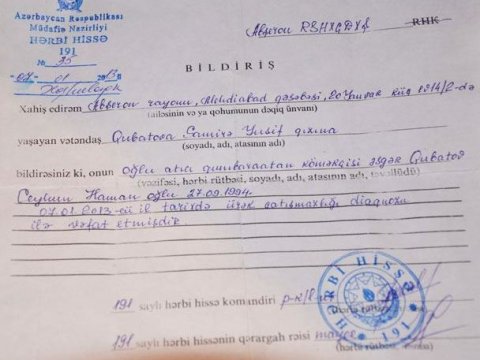 Azərbaycan Respublikası
Müdafiə Nazirliyi
HƏRBİ HİSSƏ
191
№ 35
"07" 01 2013
Abşeron RSHXÇDXŞ RHK
BİLDİRİŞ
Xahiş edirəm Abşeron rayonu, Mehdiabad qəsəbəsi, 20 Yanvar küç 1314/2-də
(ailəsinin və ya qohumunun dəqiq ünvanı)
yaşayan vətəndaş Qubatova Samirə Yusif qızına
(soyadı, adı, atasının adı)
bildirəsiniz ki, onun oğlu atıcı qumbaraatan köməkçisi əsgər Qubatov
(vəzifəsi, hərbi rütbəsi, soyadı, adı, atasının adı, təvəllüdü)
Ceyhun Haman oğlu 27.09.1994.
07.01.2013-cü il tarixdə ürək çatışmazlığı diaqnozu
ilə vəfat etmişdir.
191 saylı hərbi hissə komandiri
191 saylı hərbi hissənin qərargah rəisi mayor
HƏRBİ HİSSƏ 191